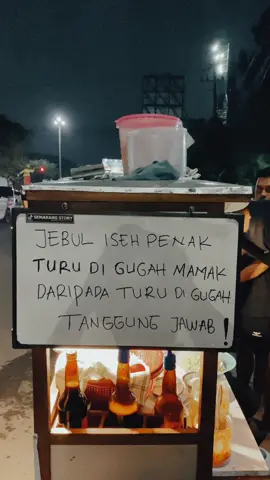 SEMARANG STORY
JEBUL ISEH PENAK
TURU DI GUGAH MAMAK
DARIPADA TURU DI GUGAH
TANGGUNG JAWAB!